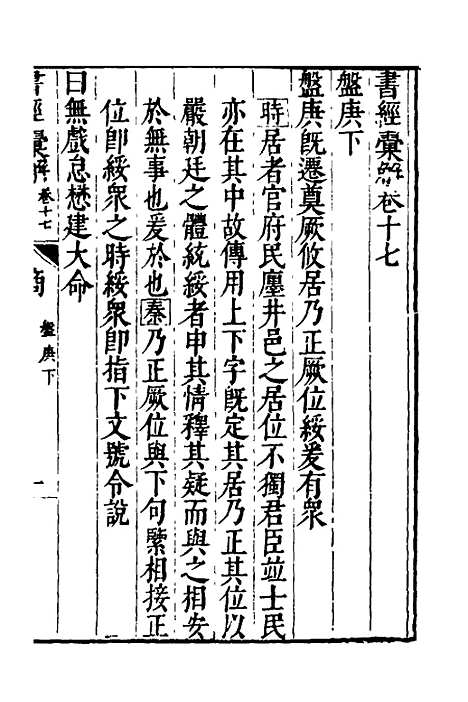 書經彙解卷十七
盤庚下
盤庚既遷奠厥攸居乃正厥位綏爰有衆
時居者官府民廛井邑之居位不獨君臣並士民
亦在其中故傳用上下字既定其居乃正其位以
嚴朝廷之體統綏者申其情釋其疑而與之相安
於無事也爰於也秦乃正厥位與下句緊相接正
位卽綏衆之時綏衆卽指下文號令說
曰無戲怠懋建大命
書經彙解卷十七
商
盤庚下
一